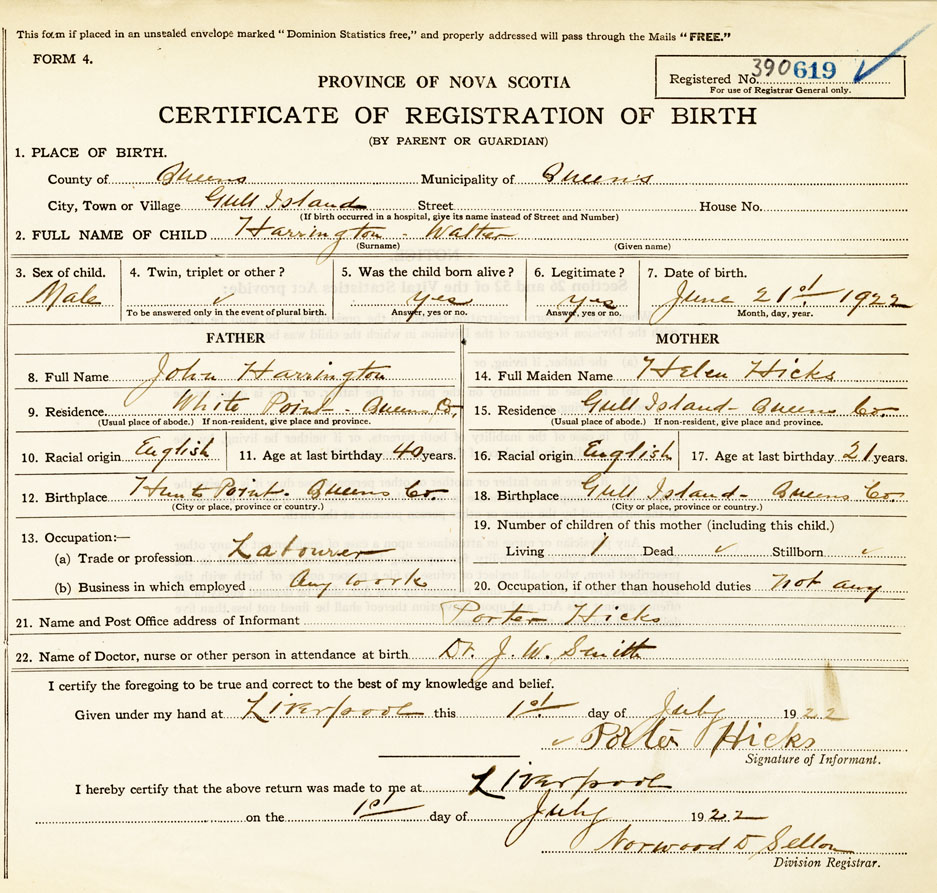 This form if placed in an unsealed envelope marked "Dominion Statistics free," and properly addressed will pass through the Mails "FREE."
FORM 4.
Registered No. 390619
For use of Registrar General only.
PROVINCE OF NOVA SCOTIA
CERTIFICATE OF REGISTRATION OF BIRTH
(BY PARENT OR GUARDIAN)
1. PLACE OF BIRTH.
County of Queens Municipality of Queen's
City, Town or Village Gull Island Street House No.
(If birth occurred in a hospital, give its name instead of Street and Number)
2. FULL NAME OF CHILD Harrington - Walter
(Surname) (Given name)
3. Sex of child. 4. Twin, triplet or other? 5. Was the child born alive? 6. Legitimate? 7. Date of birth.
Male ✓ yes yes June 21st 1922
To be answered only in the event of plural birth. Answer, yes or no. Answer, yes or no. Month, day, year.
FATHER MOTHER
8. Full Name John Harrington 14. Full Maiden Name Helen Hicks
9. Residence. White Point - Queens Co, 15. Residence Gull Island - Queens Co
(Usual place of abode.) If non-resident, give place and province. (Usual place of abode.) If non-resident, give place and province.
10. Racial origin English 11. Age at last birthday 40 years. 16. Racial origin English 17. Age at last birthday 21 years.
12. Birthplace Hunts Point - Queens Co. 18. Birthplace Gull Island - Queens Co
(City or place, province or country.) (City or place, province or country.)
13. Occupation:— 19. Number of children of this mother (including this child.)
(a) Trade or profession Labourer Living 1 Dead ✓ Stillborn ✓
(b) Business in which employed Any work 20. Occupation, if other than household duties not any
21. Name and Post Office address of Informant Porter Hicks
22. Name of Doctor, nurse or other person in attendance at birth Dr. J. W. Smith
I certify the foregoing to be true and correct to the best of my knowledge and belief.
Given under my hand at Liverpool this 1st day of July 1922
✓ Porter Hicks
Signature of Informant.
I hereby certify that the above return was made to me at Liverpool
on the 1st day of July 1922
Norwood D Sellon
Division Registrar.